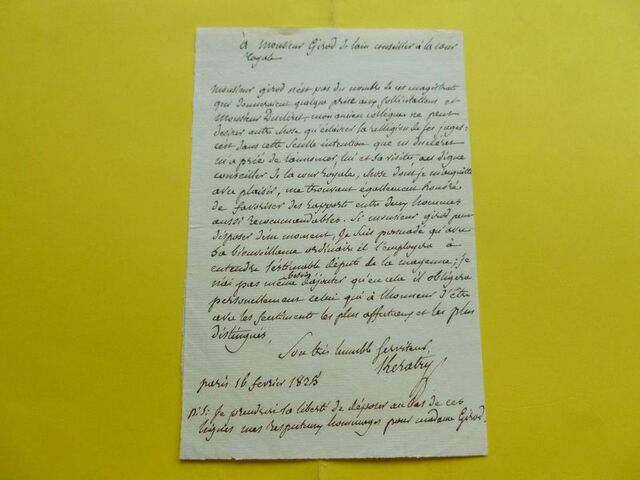 à Monsieur Girod de lain conseiller à la cour
royale
Monsieur girod n'est pas du nombre de ces magistrats
qui donneraient quelque prise aux sollicitations et
Monsieur, mon ancien collègue ne peut
désirer autre chose qu'éclairer la religion de ses juges.
c'est dans cette seulle intention que m
m'a prié de l'annoncer, lui et sa visite, au digne
conseiller de la cour royale, chose dont je m'acquitte
avec plaisir, me trouvant également honoré
de favoriser des rapport entre deux hommes
aussi recommandables. Si monsieur girod peut
disposer d'un moment, je suis persuadé qu'avec
sa bienveillance ordinaire il l'employera à
entendre l'estimable député de la mayenne; je
n'ai pas même besoin d'ajouter qu'en cela il obligera
personnellement celui qui a l'honneur d'être
avec les sentiments les plus affectueux et les plus
distingués,
Son très humble serviteur,
Keratry
paris 16 fevrier 1825
p.s: Je prendrai la liberté de déposer au bas de ces
lignes mes respectueux hommages pour madame Girod.